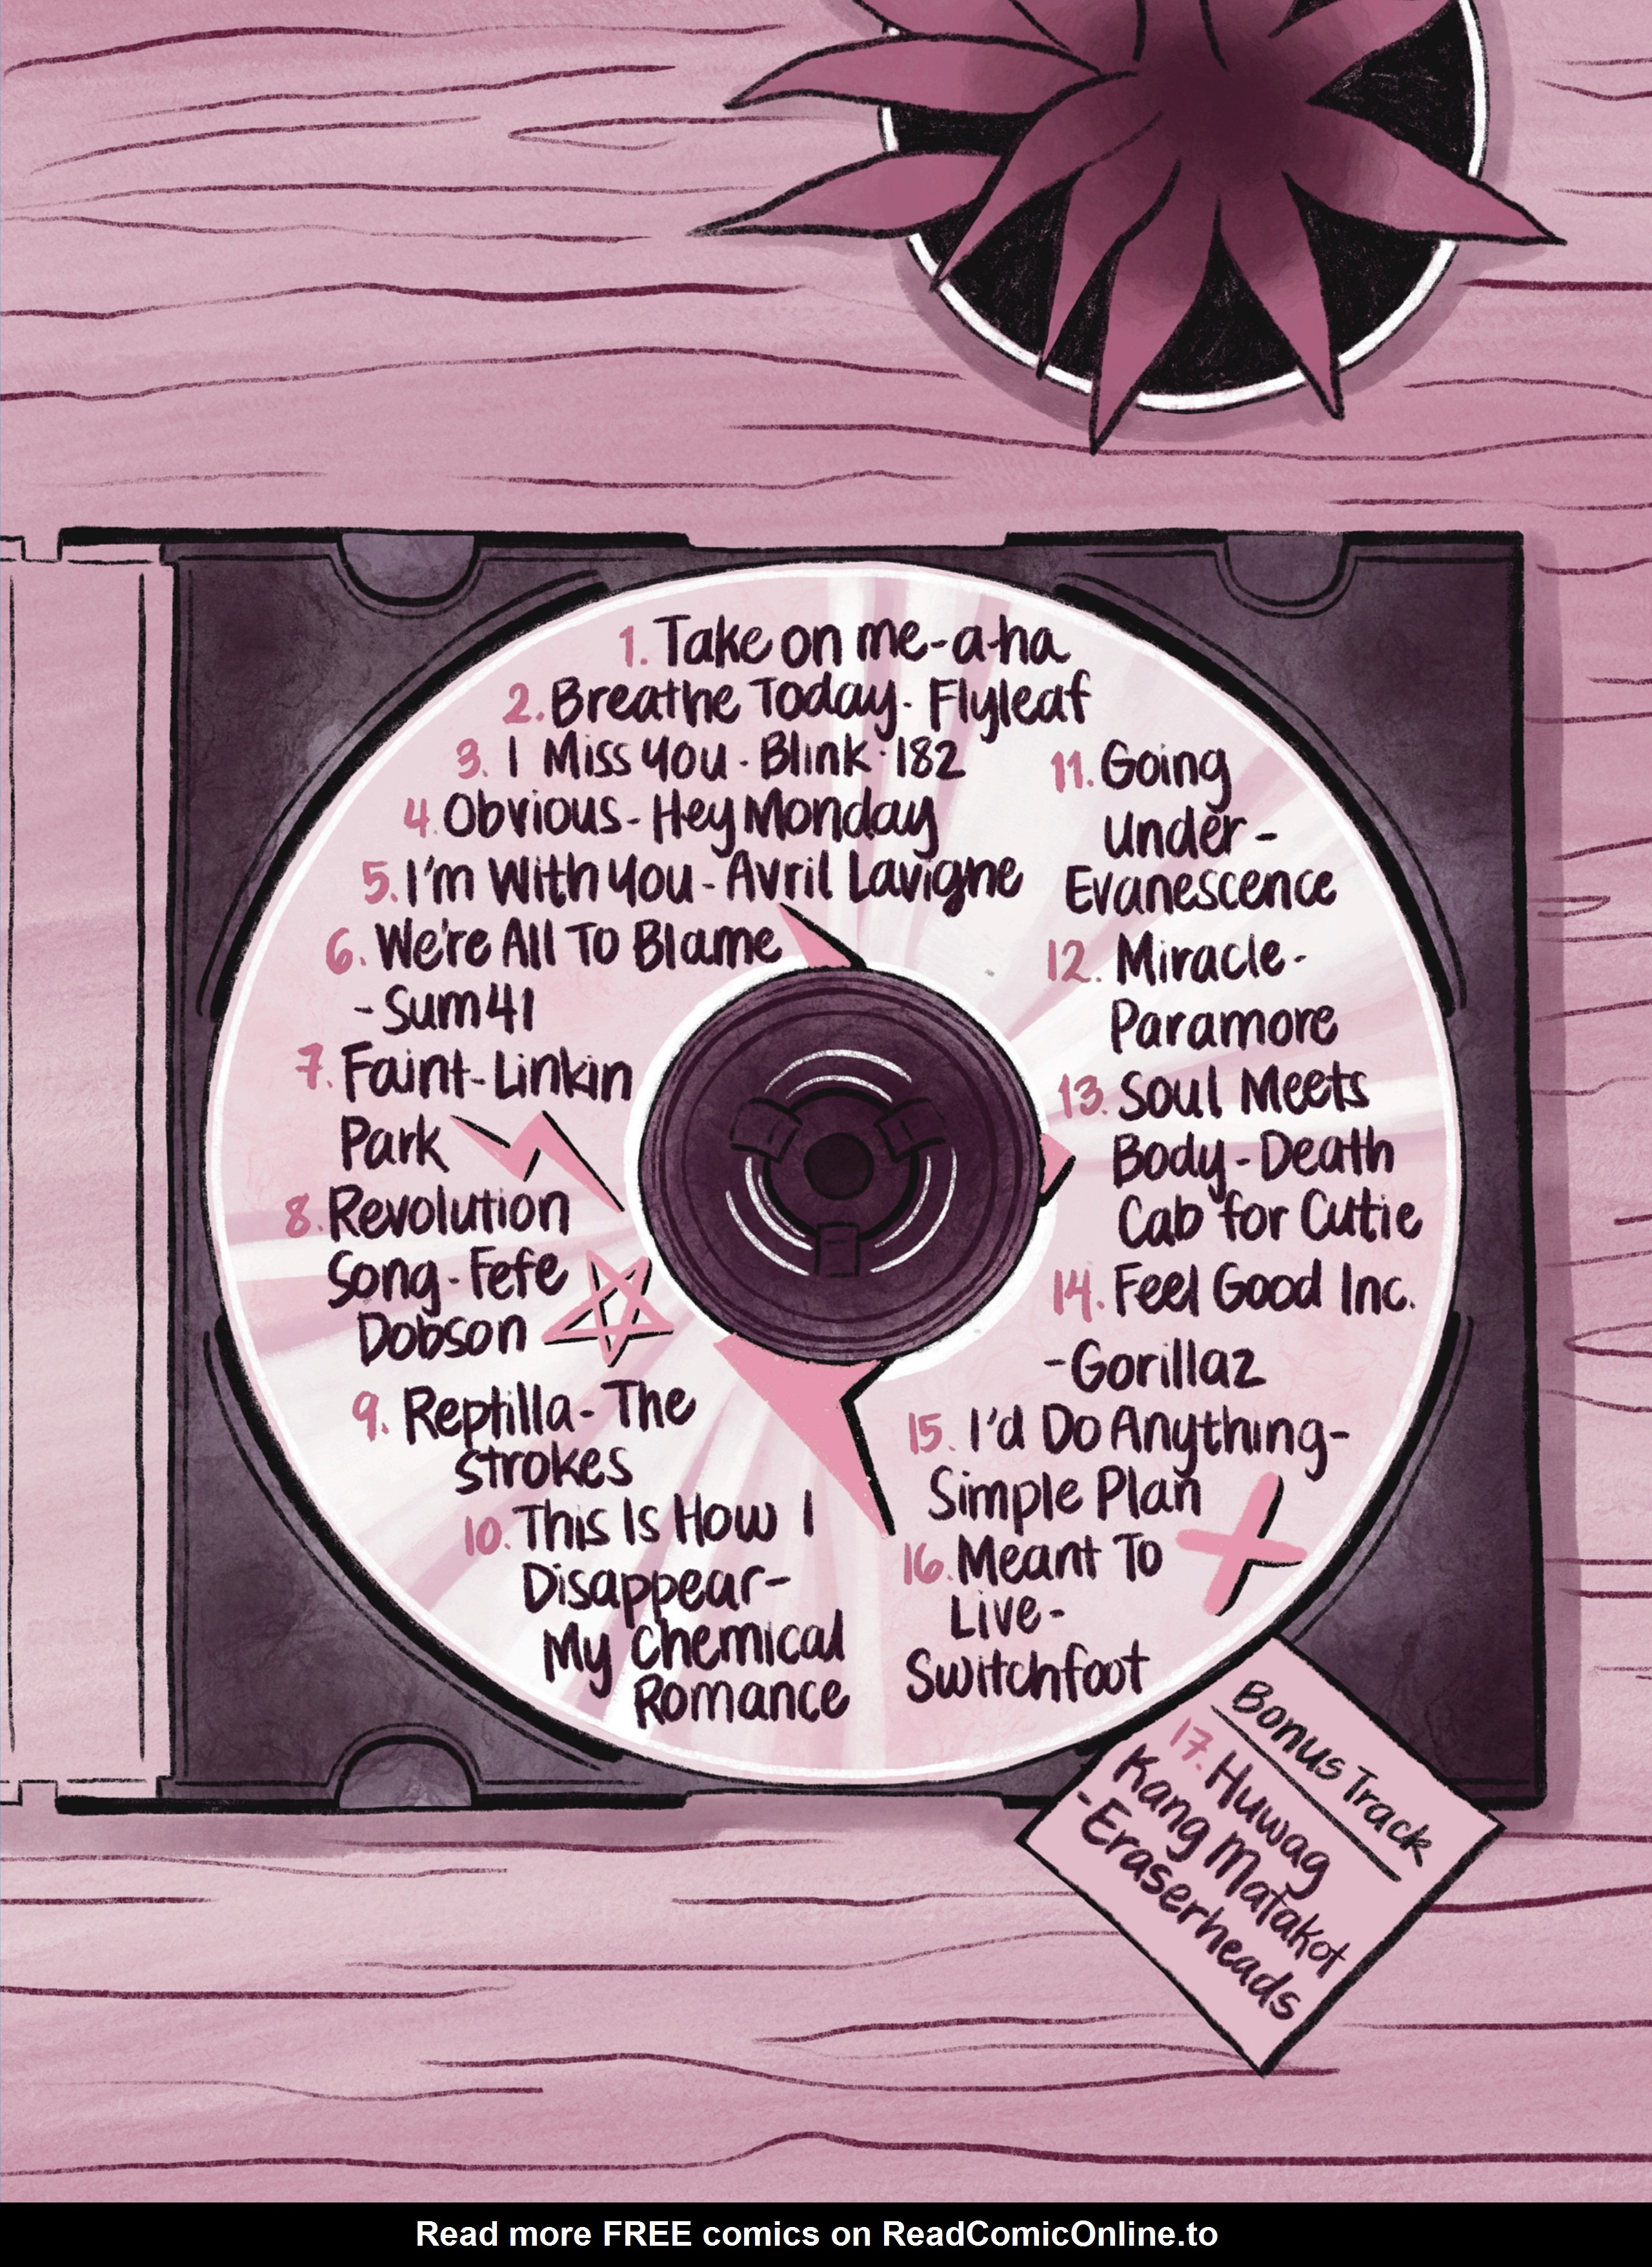 1. Take on me-a-ha
2. Breathe Today - Flyleaf
3. I Miss You - Blink-182
4. Obvious - Hey Monday
5. I'm With You - Avril Lavigne
6. We're All To Blame
- Sum41
7. Faint - Linkin
Park
8. Revolution
Song - Fefe
Dobson
9. Reptilla - The
Strokes
10. This Is How I
Disappear -
My Chemical
Romance
11. Going
Under -
Evanescence
12. Miracle -
Paramore
13. Soul Meets
Body - Death
Cab for Cutie
14. Feel Good Inc.
- Gorillaz
15. I'd Do Anything -
Simple Plan
16. Meant To
Live -
Switchfoot
Bonus Track
17. Huwag
Kang Matakot
- Eraserheads
Read more FREE comics on ReadComicOnline.to